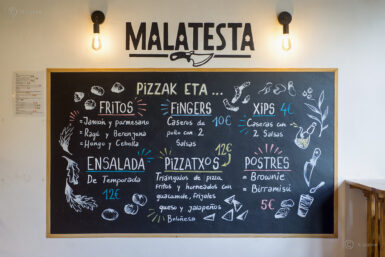 MALATESTA
PIZZAK ETA ...
FRITOS
= Jamón y parmesano
= Ragú y Berenjena
= Hongo y Cebolla
FINGERS
Caseros de 10€
pollo con 2
Salsas
XIPS 4€
Caseras con
2 Salsas
ENSALADA
De Temporada
12€
PIZZATXOS 12€
Triángulos de pizza
fritos y horneados con
guacamole, frijoles
queso y jalapeños
Boloñesa
POSTRES
= Brownie
= Birramisú
5€